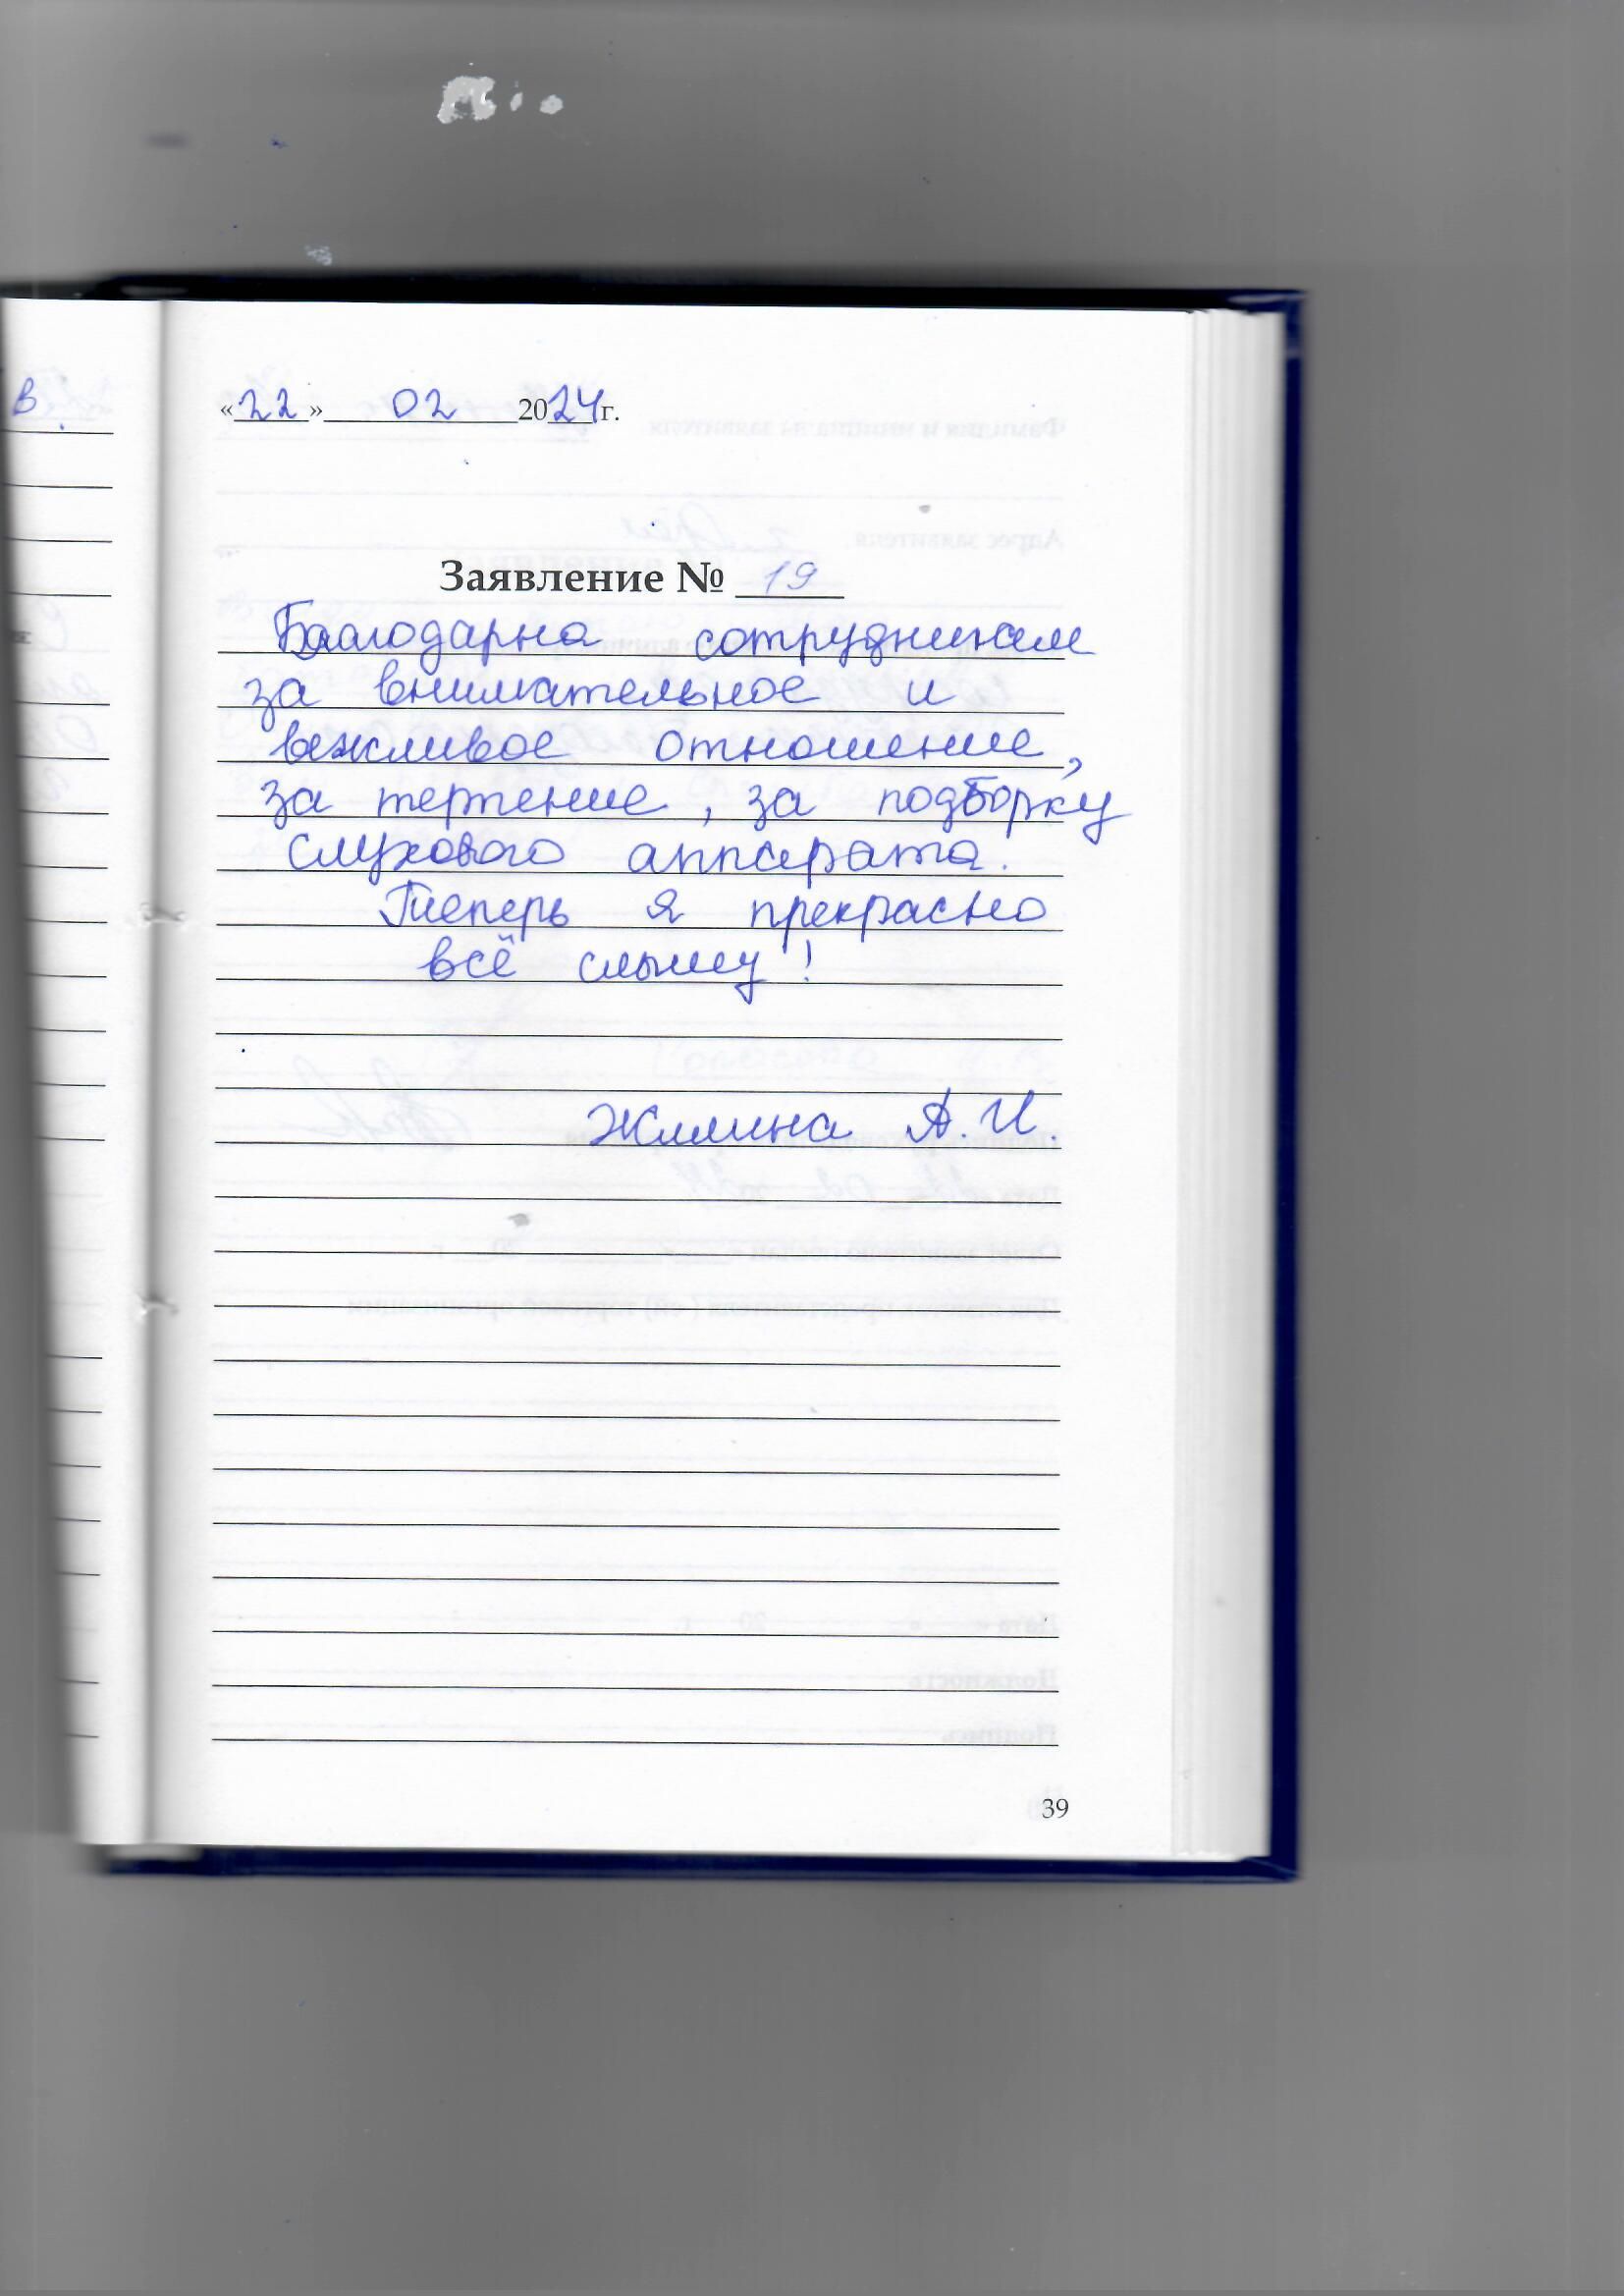 В.
«22» 02 2024г.
Заявление № 19
Благодарна сотрудникам
за внимательное и
вежливое отношение,
за терпение, за подборку
слухового аппарата.
Теперь я прекрасно
всё слышу!
А.И.
39